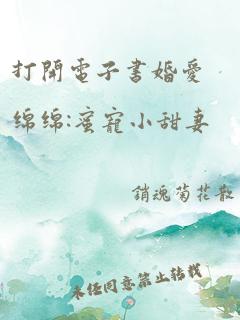 打開電子書婚愛
綿綿:蜜寵小甜妻
銷魂菊花散
未经同意禁止转载